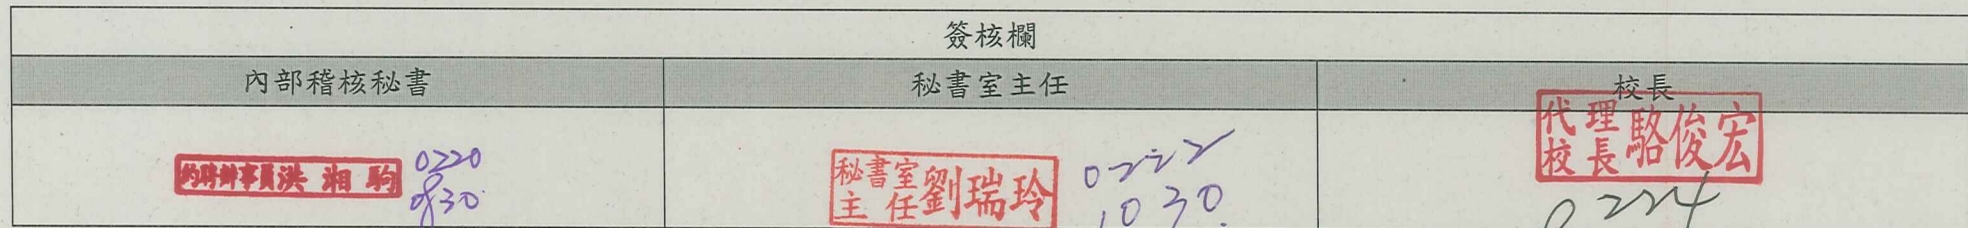 簽核欄
內部稽核秘書
秘書室主任
校長
約聘辦事員洪湘駒
0220
0930
秘書室
主任
劉瑞玲
0222
1030
代理
校長
駱俊宏
0224